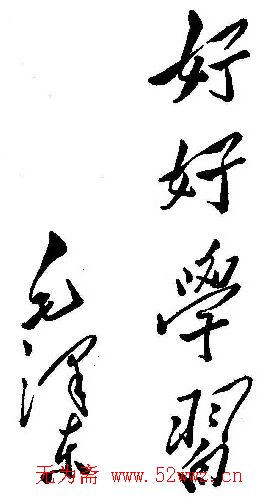 好好學習
毛澤东
无为斋 www.52wwz.cn